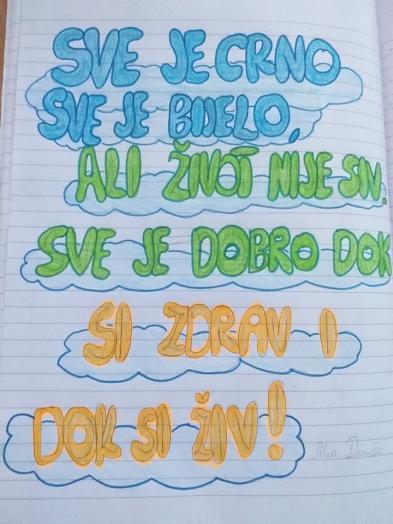 SVE JE CRNO
SVE JE BIJELO,
ALI ŽIVOT NIJE SIV.
SVE JE DOBRO DOK
SI ZDRAV I
DOK SI ŽIV!
Mia